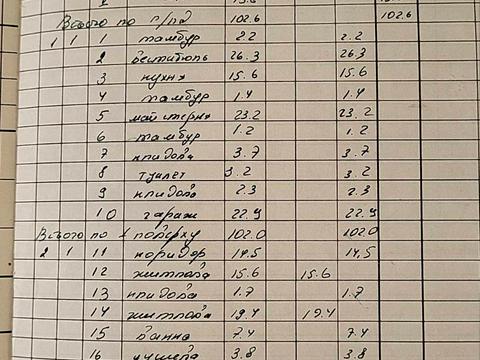 Всього по п/пд 102.6 102.6
1 1 1 тамбур 2.2 2.2
2 вестибюль 26.3 26.3
3 кухня 15.6 15.6
4 тамбур 1.4 1.4
5 майстерня 23.2 23.2
6 тамбур 1.2 1.2
7 кладова 3.7 3.7
8 туалет 3.2 3.2
9 кладова 2.3 2.3
10 гараж 22.9 22.9
Всього по 1 поверху 102.0 102.0
2 1 11 коридор 14.5 14.5
12 житлова 15.6 15.6
13 кладова 1.7 1.7
14 житлова 19.4 19.4
15 ванна 7.4 7.4
16 3.8 3.8